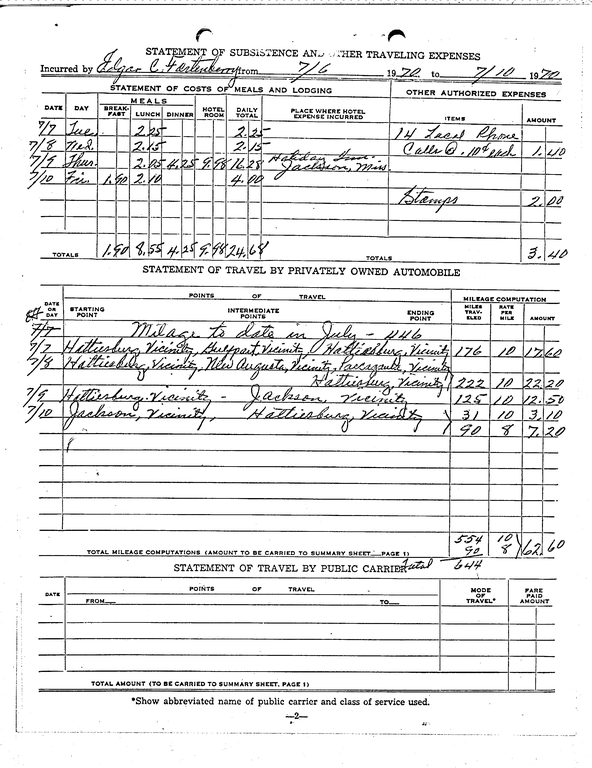 STATEMENT OF SUBSISTENCE AND OTHER TRAVELING EXPENSES
Incurred by Edgar C. Fortenberry from 7/6 1970 to 7/10 1970
STATEMENT OF COSTS OF MEALS AND LODGING OTHER AUTHORIZED EXPENSES
DATE DAY MEALS BREAK-FAST LUNCH DINNER HOTEL ROOM DAILY TOTAL PLACE WHERE HOTEL EXPENSE INCURRED ITEMS AMOUNT
7/7 Tue. 2.25 2.25 14 Local Phone
7/8 Wed. 2.15 2.15 Calls @ .10¢ each 1.40
7/9 Thur. 2.05 4.25 9.98 16.28 Holiday Inn - Jackson, Miss.
7/10 Fri. 1.90 2.10 4.00
Stamps 2.00
TOTALS 1.90 8.55 4.25 9.98 24.68 TOTALS 3.40
STATEMENT OF TRAVEL BY PRIVATELY OWNED AUTOMOBILE
DATE OR DAY POINTS OF TRAVEL MILEAGE COMPUTATION
STARTING POINT INTERMEDIATE POINTS ENDING POINT MILES TRAV-ELED RATE PER MILE AMOUNT
7/7 Milage to date in July - 446
7/7 Hattiesburg Vicinity, Gulfport, Vicinity Hattiesburg, Vicinity 176 10 17.60
7/8 Hattiesburg, Vicinity, New Augusta, Vicinity, Pascagoula, Vicinity
Hattiesburg, Vicinity 222 10 22.20
7/9 Hattiesburg Vicinity - Jackson, Vicinity 125 10 12.50
7/10 Jackson, Vicinity, Hattiesburg, Vicinity 31 10 3.10
90 8 7.20
554 10
TOTAL MILEAGE COMPUTATIONS (AMOUNT TO BE CARRIED TO SUMMARY SHEET. PAGE 1) 90 8 62.60
STATEMENT OF TRAVEL BY PUBLIC CARRIER Total 644
DATE POINTS OF TRAVEL MODE OF TRAVEL* FARE PAID AMOUNT
FROM TO
TOTAL AMOUNT (TO BE CARRIED TO SUMMARY SHEET. PAGE 1)
*Show abbreviated name of public carrier and class of service used.
—2—